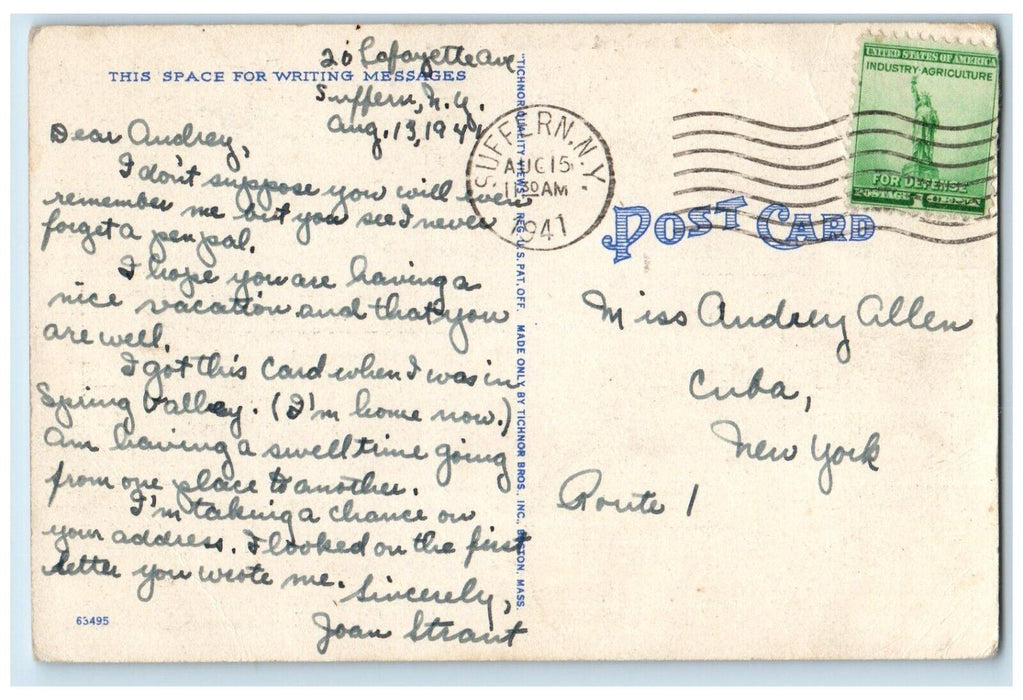 20 Lafayette Ave
THIS SPACE FOR WRITING MESSAGES
Suffern, N.Y.
Aug. 13, 1941
Dear Audrey,
I don't suppose you will even
remember me but you see I never
forget a pen pal.
I hope you are having a
nice vacation and that you
are well.
I got this card when I was in
Spring Valley. (I'm home now.)
Am having a swell time going
from one place to another.
I'm taking a chance on
your address. I looked on the first
letter you wrote me.
Sincerely,
Joan Strant
63495
"TICHNOR QUALITY VIEWS," REG. U.S. PAT. OFF. MADE ONLY BY TICHNOR BROS. INC., BOSTON, MASS.
SUFFERN, N.Y.
AUG 15
11 30 AM
1941
UNITED STATES OF AMERICA
INDUSTRY·AGRICULTURE
FOR DEFENSE
POSTAGE
POST CARD
Miss Audrey Allen
Cuba,
New York
Route 1